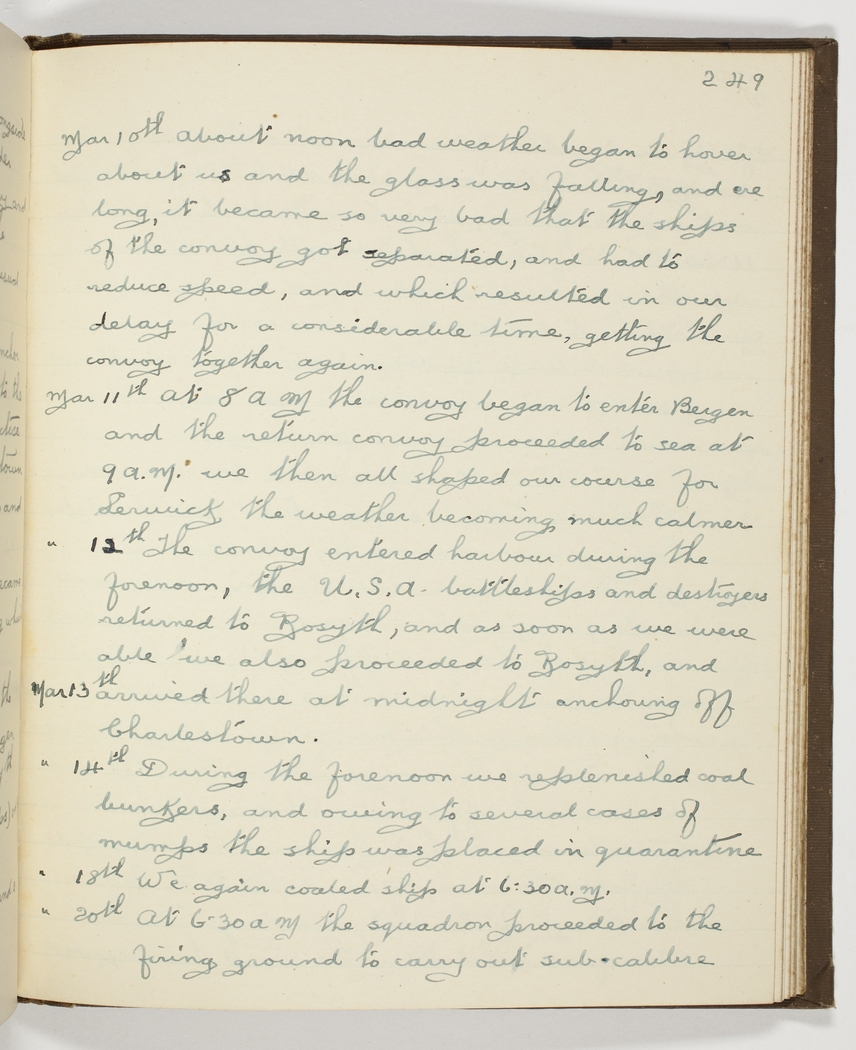 249
Mar 10th about noon bad weather began to hover
about us and the glass was falling, and ere
long, it became so very bad that the ships
of the convoy got separated, and had to
reduce speed, and which resulted in our
delay for a considerable time, getting the
convoy together again.
Mar 11th At 8 a m the convoy began to enter Bergen
and the return convoy proceeded to sea at
9 a.m. we then all shaped our course for
Lerwick, the weather becoming much calmer
" 12th The convoy entered harbour during the
forenoon, the U.S.A. battleships and destroyers
returned to Rosyth, and as soon as we were
able we also proceeded to Rosyth, and
Mar 13th arrived there at midnight anchoring off
Charlestown.
" 14th During the forenoon we replenished coal
bunkers, and owing to several cases of
mumps the ship was placed in quarantine
" 18th We again coaled ship at 6:30 a.m.
" 20th At 6-30 a m the squadron proceeded to the
firing ground to carry out sub-calibre